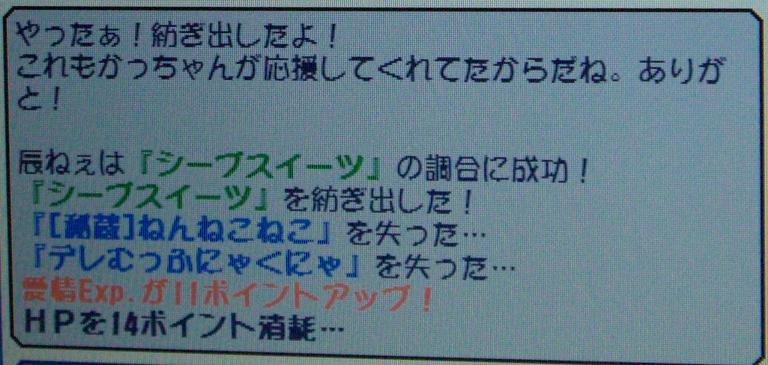 やったぁ！紡ぎ出したよ！
これもかっちゃんが応援してくれてたからだね。ありが
と！
辰ねぇは『シープスイーツ』の調合に成功！
『シープスイーツ』を紡ぎ出した！
『[秘蔵]ねんねこねこ』を失った…
『デレむっふにゃくにゃ』を失った…
愛情Exp.が11ポイントアップ！
ＨＰを14ポイント消耗…